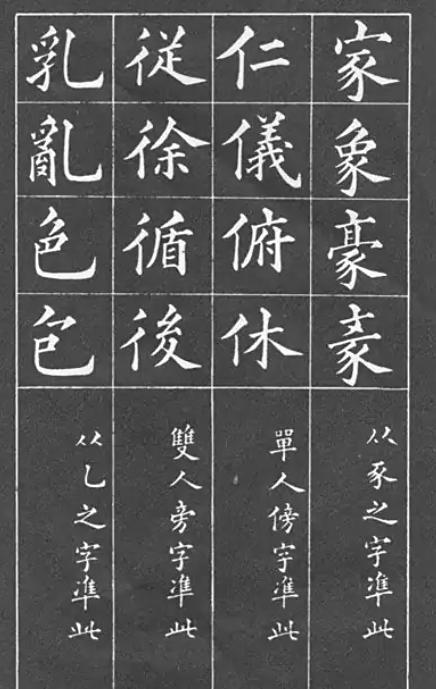 家象豪䝞
从豕之字準此
仁儀俯休
單人傍字準此
従徐循後
雙人旁字準此
乳亂色包
从乚之字準此